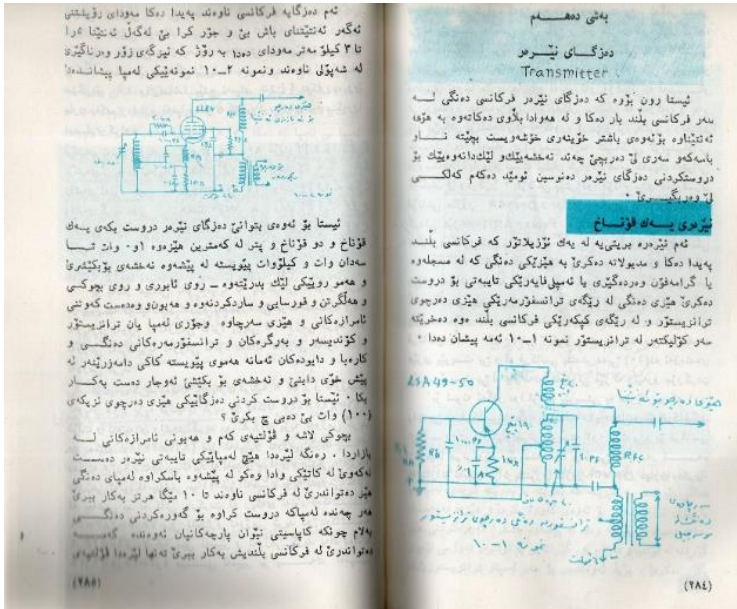 بەشی دەهـــەم
دەزگـــای نێـــرەر
Transmitter
ئیستا ڕون بۆوە که دەزگای نێرەر فرکانسی دەنگی لـــه
سەر فرکانسی بڵند بار دەکا و له هەوادا بڵاوی دەکاتەوە به هۆی
ئەنتێناوە بۆئەوەی باشتر خوێنەری خۆشەویست بچێته نـــاو
باسەکەو سەری لێ دەربچێ چەند نەخشەیێك و لێكدانەوەیێك بۆ
دروستکردنی دەزگای نێرەر دەنوسین ئومێد دەکەم کەلکـــی
لێ وەربگیـــرێ ٠
نێرەری یـــەك قۆنـــاخ
ئەم نێرەرە بریتی یە لە یەك ئۆزیلاتۆر که فرکانسی بڵنـــد
پەیدا دەکا و مدیولاته دەکرێ به هێزێکی دەنگی که له مسجلەوە
یا گرامەفۆن وەردەگیرێ یا ئەمپلی‌فایەرێکی تایبەتی بۆ دروست
دەکرێ هێزی دەنگی له ڕێگەی ترانسفۆرمەرێکی هێزی دەرچوی
ترانزیستۆر و له ڕێگەی کپکەرێکی فرکانسی بڵند ەوە دەخرێته
سەر کۆلیکتەر له ترانزیستۆر نمونه ١-١٠ ئەمه پیشان دەدا ٠
2SA49-50
R.F.C
نمونه ١-١٠
(٢٨٤)
ئەم دەزگایه فرکانسی ناوەند پەیدا دەکا مەودای ڕۆیشتنی
ئەگەر ئەنتێنای باش بێ و جۆر کرا بێ لەگەڵ
تا ٣ کیلۆ مەتر مەودای دەدا به ڕۆژ که نێرگەی زۆر وەرناگیرێ
له شەپۆلی ناوەند ونمونه ٢-١٠ نمونەیێکی لەمپا پیشاندەدا
نمونه ٢-١٠
ئیستا بۆ ئەوەی بتوانێ دەزگای نێرەر دروست بکەی یـــەك
قۆناخ و دو قۆناخ و پتر له کەمترین هێزەوە ٠٫١ وات تـــا
سەدان وات و کیلۆوات پێویسته له پێشەوه نەخشەی بۆبکێشرێ
و هەمو ڕویێکی لێك بدرێتەوه - ڕوی ئابوری و ڕوی بچوکـــی
و هەڵگرتن و قورسایی و ساردکردنەوه و هەیون‌و وەدەست کەوتنی
ئامرازەکانی و هێزی سەرچاوه وجۆری لەمپا یان ترانزیستۆر
و کۆندیسەر و بەرگرەکان و ترانسفۆرمەرەکانی دەنگـــی و
کارەبا و دایودەکان ئەمانه هەموی پێویسته کاکی دامەزرێنەر له
پێش خۆی دابنێ و نەخشەی بۆ بکێشێ ئەوجار دەست بەکـــار
بکا ٠ ئێستا بۆ دروست کردنی دەزگایێکی هێزی دەرچوی نزیکەی
(١٠٠) وات بێ دەبێ چ بکرێ ؟
بچوکی لاشه و فۆلتیەی کەم و هەبونی ئامرازەکانی لـــه
بازاردا ٠ ڕەنگه لێرەدا هێچ لەمپایێکی تایبەتی نێرەر دەســـت
نەکەوێ له کاتێکی وادا وەکو له پێشەوە باسکراوه لەمپای دەنگی
هێز دەتواندرێ له فرکانسی ناوەند تا ١٠ مێگا هرتز بەکار ببرێ
هەر چەنده لەمپاکه دروست کراوه بۆ گەورەکردنی دەنگـــی
بەلام چونکه کاپاسیتی نێوان پارچەکانیان ئەوەنده
دەتواندرێ له فرکانسی بڵندیش بەکار ببرێ تەنها لێرەدا ڤۆلتیەی
(٢٨٥)